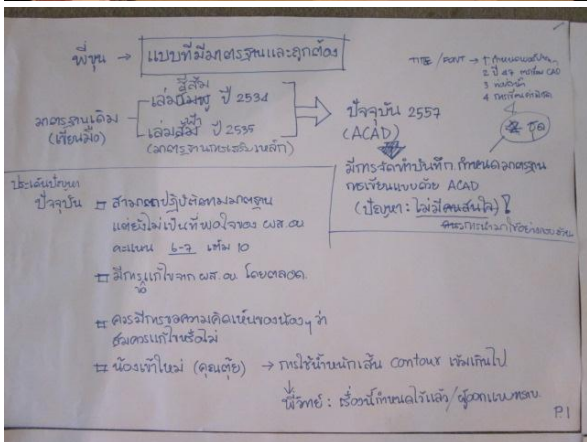 พี่ขุน → แบบที่มีมาตรฐานและถูกต้อง
มาตรฐานเดิม
(เขียนมือ)
สีส้ม
เล่มชมพู ปี 2534
ฟ้า
เล่มส้ม ปี 2535
(มาตรฐานการเสริมเหล็ก)
ปัจจุบัน 2557
(ACAD)
TITLE / FONT →
2 ปี 47 CAD
3
4
2 ชุด
มีการจัดทำบันทึก กำหนดมาตรฐาน
การเขียนแบบด้วย ACAD
(ปัญหา : ไม่มีคนสนใจ) !
ประเด็นปัญหา
ปัจจุบัน
สามารถปฏิบัติตามมาตรฐาน
แต่ยังไม่เป็นที่พอใจของ ผส.อบ
คะแนน 6-7 เต็ม 10
มีการแก้ไขจาก ผส.อบ. โดยตลอด.
ควรมีการขอความคิดเห็นของน้องๆ ว่า
สมควรแก้ไขหรือไม่
น้องเข้าใหม่ (คุณตุ้ย) → การใช้น้ำหนักเส้น Contour เข้มเกินไป
พี่วิทย์ : เรื่องนี้กำหนดไว้แล้ว / ผู้ออกแบบทราบ.
P.1